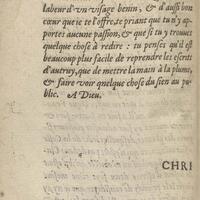 labeur d'un visage benin, & d'aussi bon
cœur que ie te l'offre, te priant que tu n'y ap-
portes aucune passion, & que si tu y trouues
quelque chose à redire : tu penses qu'il est
beaucoup plus facile de reprendre les escrits
d'autruy, que de mettre la main à la plume,
& faire voir quelque chose du sien au pu-
blic. A Dieu.
CHRI